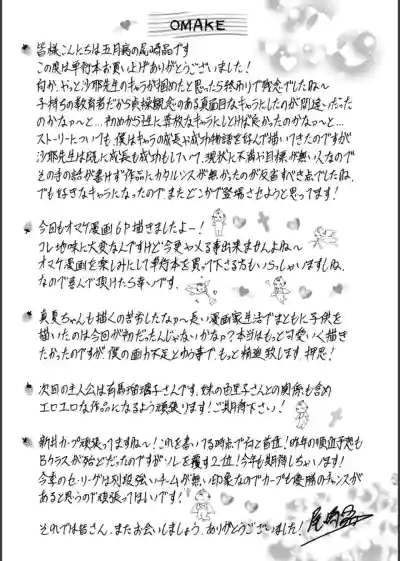 OMAKE
皆様こんにちは五月病の尾崎晶です
この度は単行本お買い上げありがとうございました！
何か、やっと沙耶先生のキャラが掴めたと思ったら終わりで残念でしたね〜
子持ちの教育者だから貞操観念のある真面目なキャラにしたのが間違いだった
のかなぁ〜と…初めから性に奔放なキャラにしとけば良かったのかなっ〜と…
ストーリーについても、僕はキャラの成長や成功物語を好んで描いてきたのですが
沙耶先生は既に成長も成功もしていて、現状に不満や目標が無い人なので
その手の話が書けず作品にカタルシスが無かったのが反省すべき点でしたね、
でも好きなキャラになったので、またどこかで登場させようと思ってます！
今回もオマケ漫画6P描きましたよー！
コレ地味に大変なんですけど今更やめる事出来ませんよね〜
オマケ漫画を楽しみにして単行本を買って下さる方もいらっしゃいますしね、
なので喜んで頂けたら幸いです、
真夏ちゃんも描くの苦労したなぁ〜長い漫画家生活でまともに子供を
描いたのは今回が初だったんじゃないかなぁ？本当はもっと可愛いく描き
たかったのですが僕の画力不足とゆう事で、もっと精進致します、押忍！
次回の主人公は有馬瑠璃子さんです、妹の由里子さんとの関係も含め
エロエロな作品になるよう頑張ります！ご期待下さい！
新井カープ頑張ってますね〜！これを書いてる時点で何と首位！昨年の順位予想も
Bクラスが殆どだったのですがソレを覆す2位！今年も期待しちゃいます！
今季のセ・リーグは別段強いチームが無い印象なのでカープも優勝のチャンスが
あると思うので頑張ってほしいです！
それでは皆さん、またお会いしましょう、ありがとうございました！